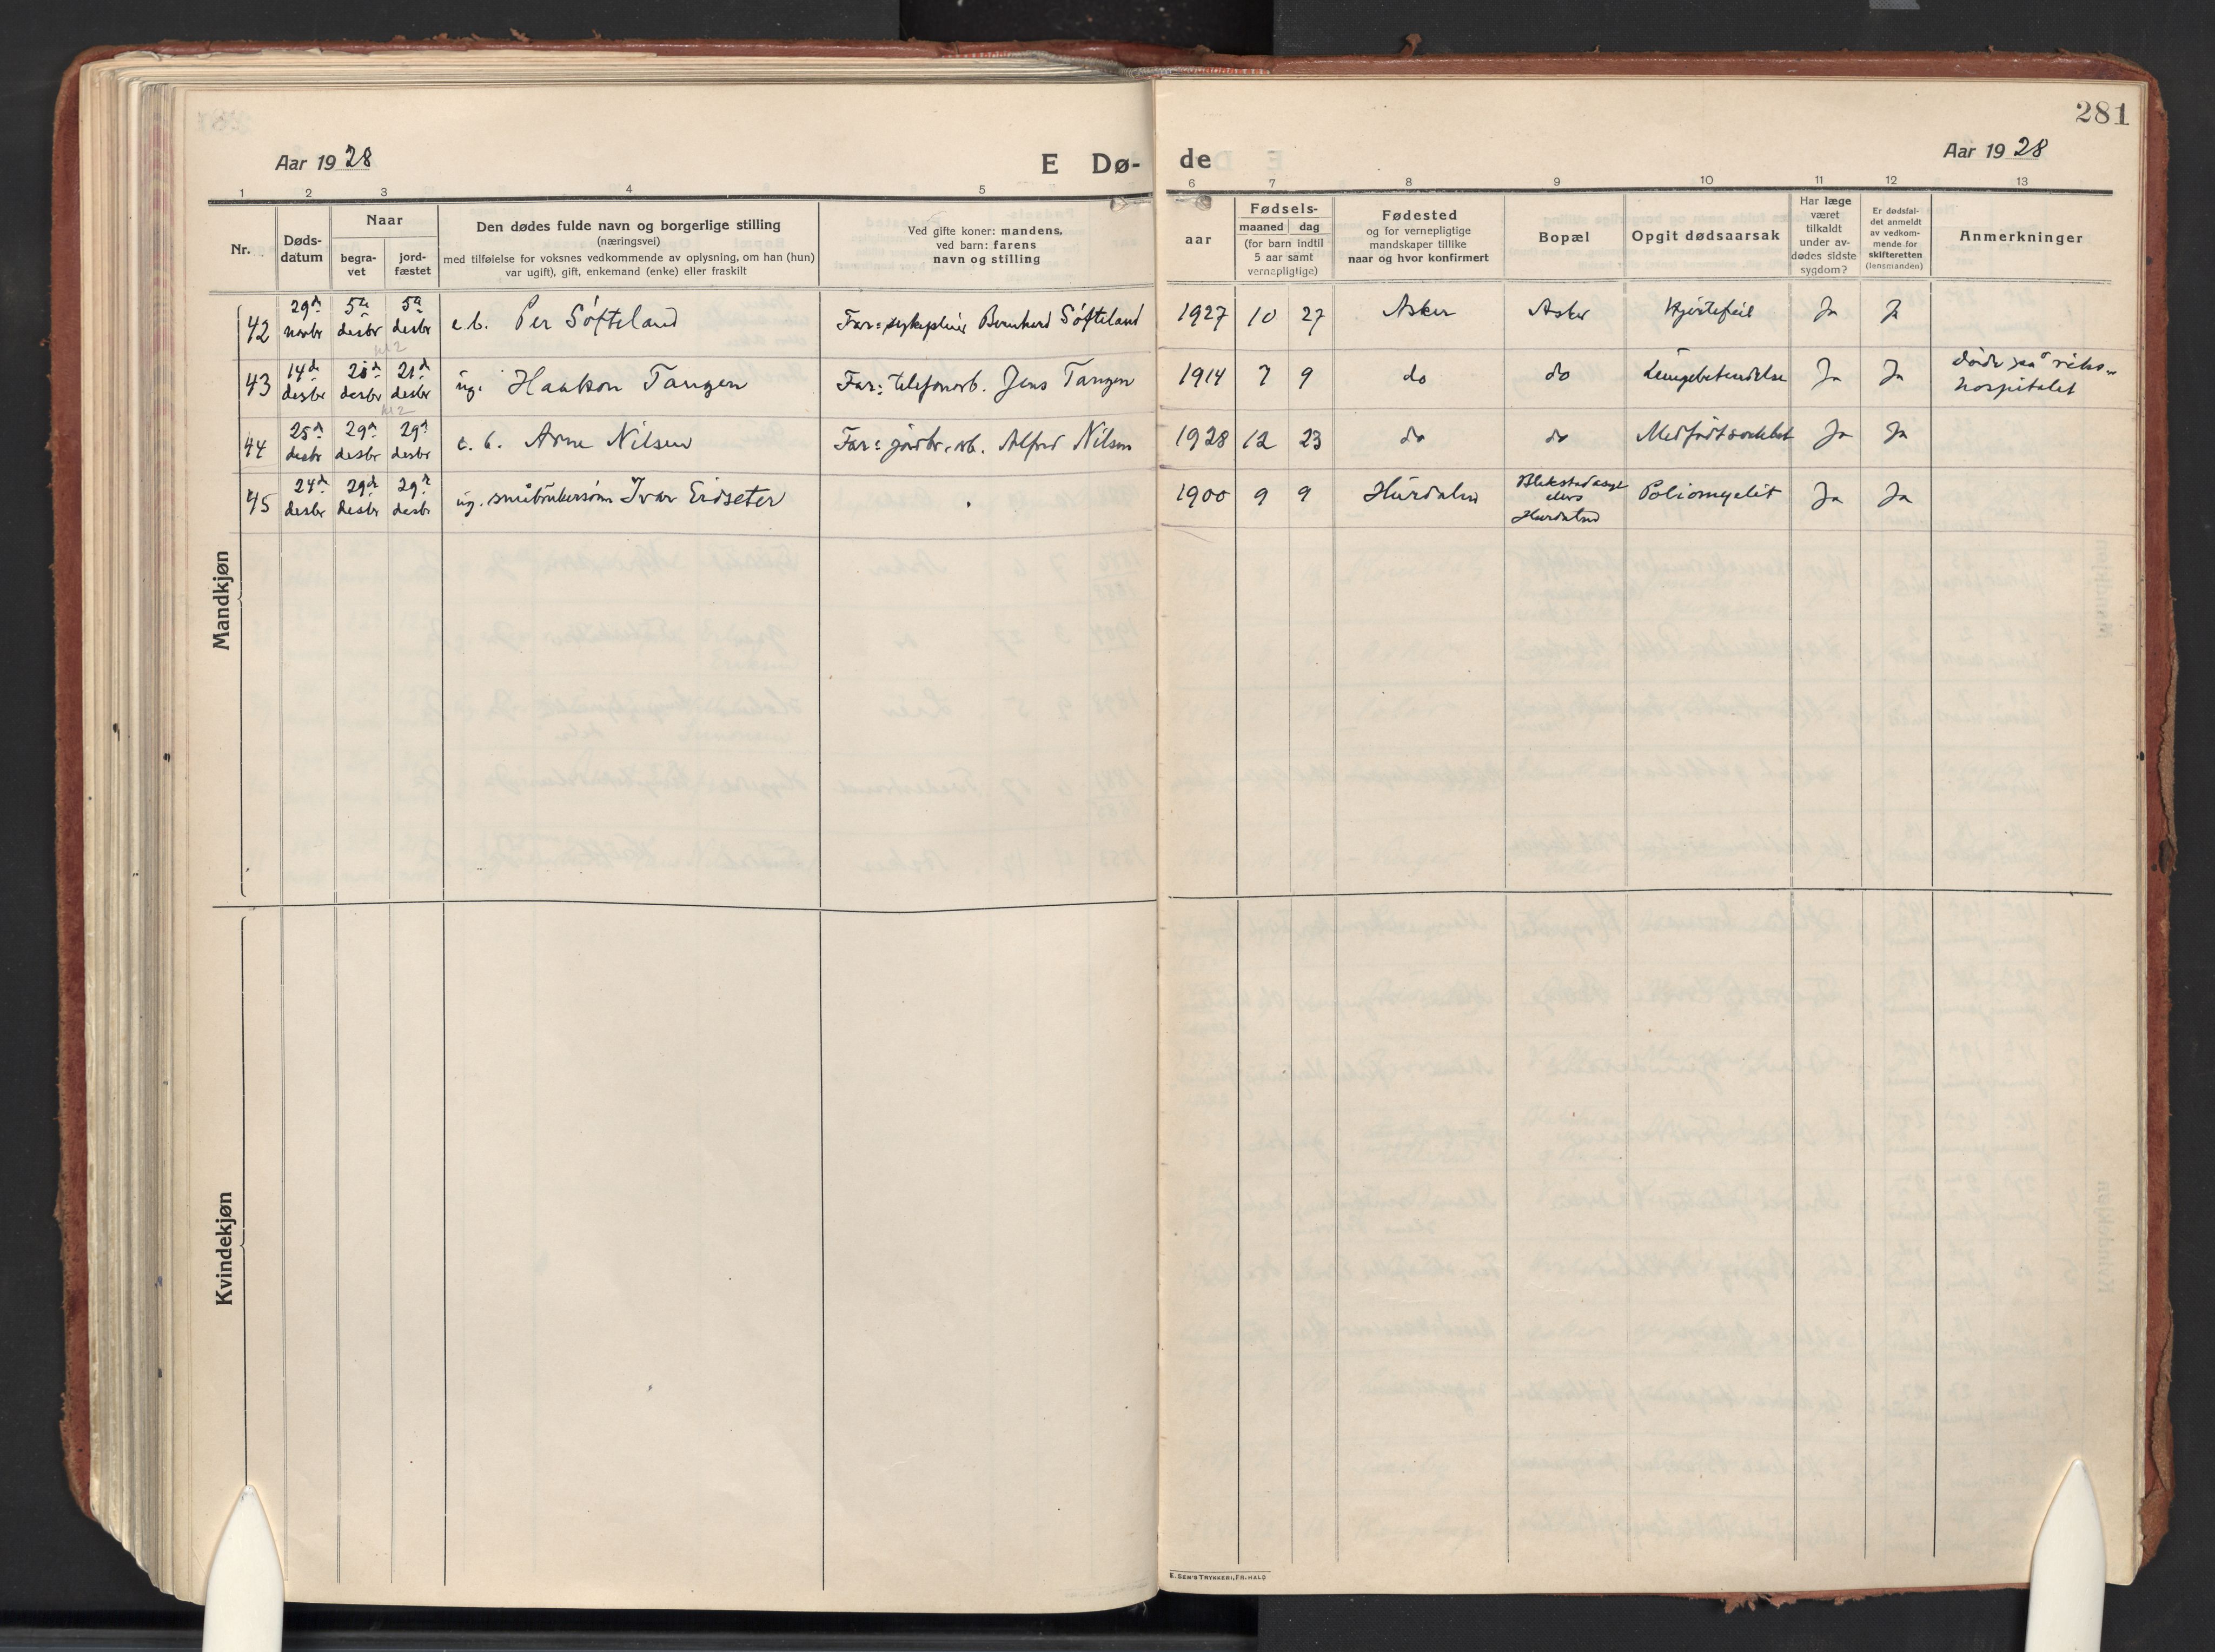 281
Aar 1928
E Dø-
de
Aar 1928
1 2 3 4 5 6 7 8 9 10 11 12 13
Nr.
Døds-
datum
Naar
begra-
vet
jord-
fæstet
Den dødes fulde navn og borgerlige stilling
(næringsvei)
med tilføielse for voksnes vedkommende av oplysning, om han (hun)
var ugift), gift, enkemand (enke) eller fraskilt
Ved gifte koner: mandens,
ved barn: farens
navn og stilling
aar
Fødsels-
maaned dag
(for barn indtil
5 aar samt
vernepligtige)
Fødested
og for vernepligtige
mandskaper tillike
naar og hvor konfirmert
Bopæl
Opgit dødsaarsak
Har læge
været
tilkaldt
under av-
dødes sidste
sygdom?
Er dødsfal-
det anmeldt
av vedkom-
mende for
skifteretten
(lensmanden)
Anmerkninger
Mandkjøn
42 29d novbr 5te desbr 5te desbr e.b. Per Søfteland Far: sykepleier Bernhard Søfteland 1927 10 27 Asker Asker Hjertefeil Ja Ja
43 14de desbr desbr 21d desbr ug. Haakon Tangen Far: telefonarb. Jens Tangen 1914 7 9 do do Lungebetendelse Ja Ja døde på riks-
hospitalet
44 25d desbr 29d desbr 29d desbr e.b. Arne Nilsen Far: jordbr.arb. Alfred Nilsen 1928 12 23 do do Medfødt svakhet Ja Ja
45 24de desbr 29de desbr 29de desbr ug. småbrukersønn Ivar Eidseter 1900 9 9 Hurdalen Blekstad asyl
ellers
Hurdalen Poliomyelit Ja Ja
Kvindekjøn
E. SEM'S TRYKKERI, FR.HALD